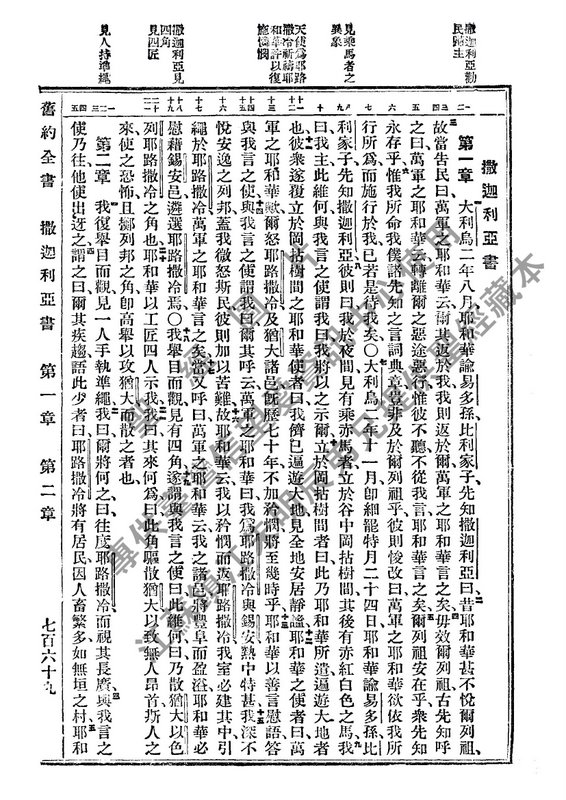 撒迦利亞勸
民歸主
見乘馬者之
異象
天使爲耶路
撒冷祈禱耶
和華許以復
施憐憫
撒迦利亞見
四角
見四匠
見人持準繩
撒迦利亞書
第一章 大利烏二年八月耶和華諭易多孫比利家子先知撒迦利亞曰昔耶和華甚不悅爾列祖
故當告民曰萬軍之耶和華云爾其返於我我則返於爾萬軍之耶和華言之矣毋效爾列祖古先知呼
之曰萬軍之耶和華云轉離爾之惡途惡行惟彼不聽不從我言耶和華言之矣爾列祖安在乎衆先知
永存乎惟我所命我僕諸先知之言詞典章豈非及於爾列祖乎彼則悛改曰萬軍之耶和華欲依我所
行所爲而施行於我已若是待我矣○大利烏二年十一月卽細罷特月二十四日耶和華諭易多孫比
利家子先知撒迦利亞彼則曰我於夜間見有乘赤馬者立於谷中岡拈樹間其後有赤紅白色之馬我
曰我主此維何與我言之使謂我曰我將以之示爾立於岡拈樹間者曰此乃耶和華所遣遍遊大地者
也彼衆遂復立於岡拈樹間之耶和華使者曰我儕已遍遊大地見全地安居靜謐耶和華之使者曰萬
軍之耶和華歟爾怒耶路撒冷及猶大諸邑旣歷七十年不加矜憫將至幾時乎耶和華以善言慰語答
與我言之使與我言之使謂我曰爾其呼云萬軍之耶和華曰我爲耶路撒冷與錫安熱中特甚我深不
悅安逸之列邦蓋我微怒斯民彼則加以苦難故耶和華云我以矜憫而返耶路撒冷我室必建其中引
繩於耶路撒冷萬軍之耶和華言之矣當又呼曰萬軍之耶和華云我之諸邑將豐阜而盈溢耶和華必
慰藉錫安邑遴選耶路撒冷焉○我舉目而觀見有四角遂謂與我言之使曰此維何曰乃散猶大以色
列耶路撒冷之角也耶和華以工匠四人示我我曰其來何爲曰此角驅散猶大以致無人昂首斯人之
來使之恐怖且擲列邦之角卽高舉以攻猶大而散之者也
第二章 我復舉目而觀見一人手執準繩我曰爾將何之曰往度耶路撒冷而視其長廣與我言之
使乃往他使出迓之謂之曰爾其疾趨語此少者曰耶路撒冷將有居民因人畜繁多如無垣之村耶和
舊約全書 撒迦利亞書 第一章 第二章 七百六十九